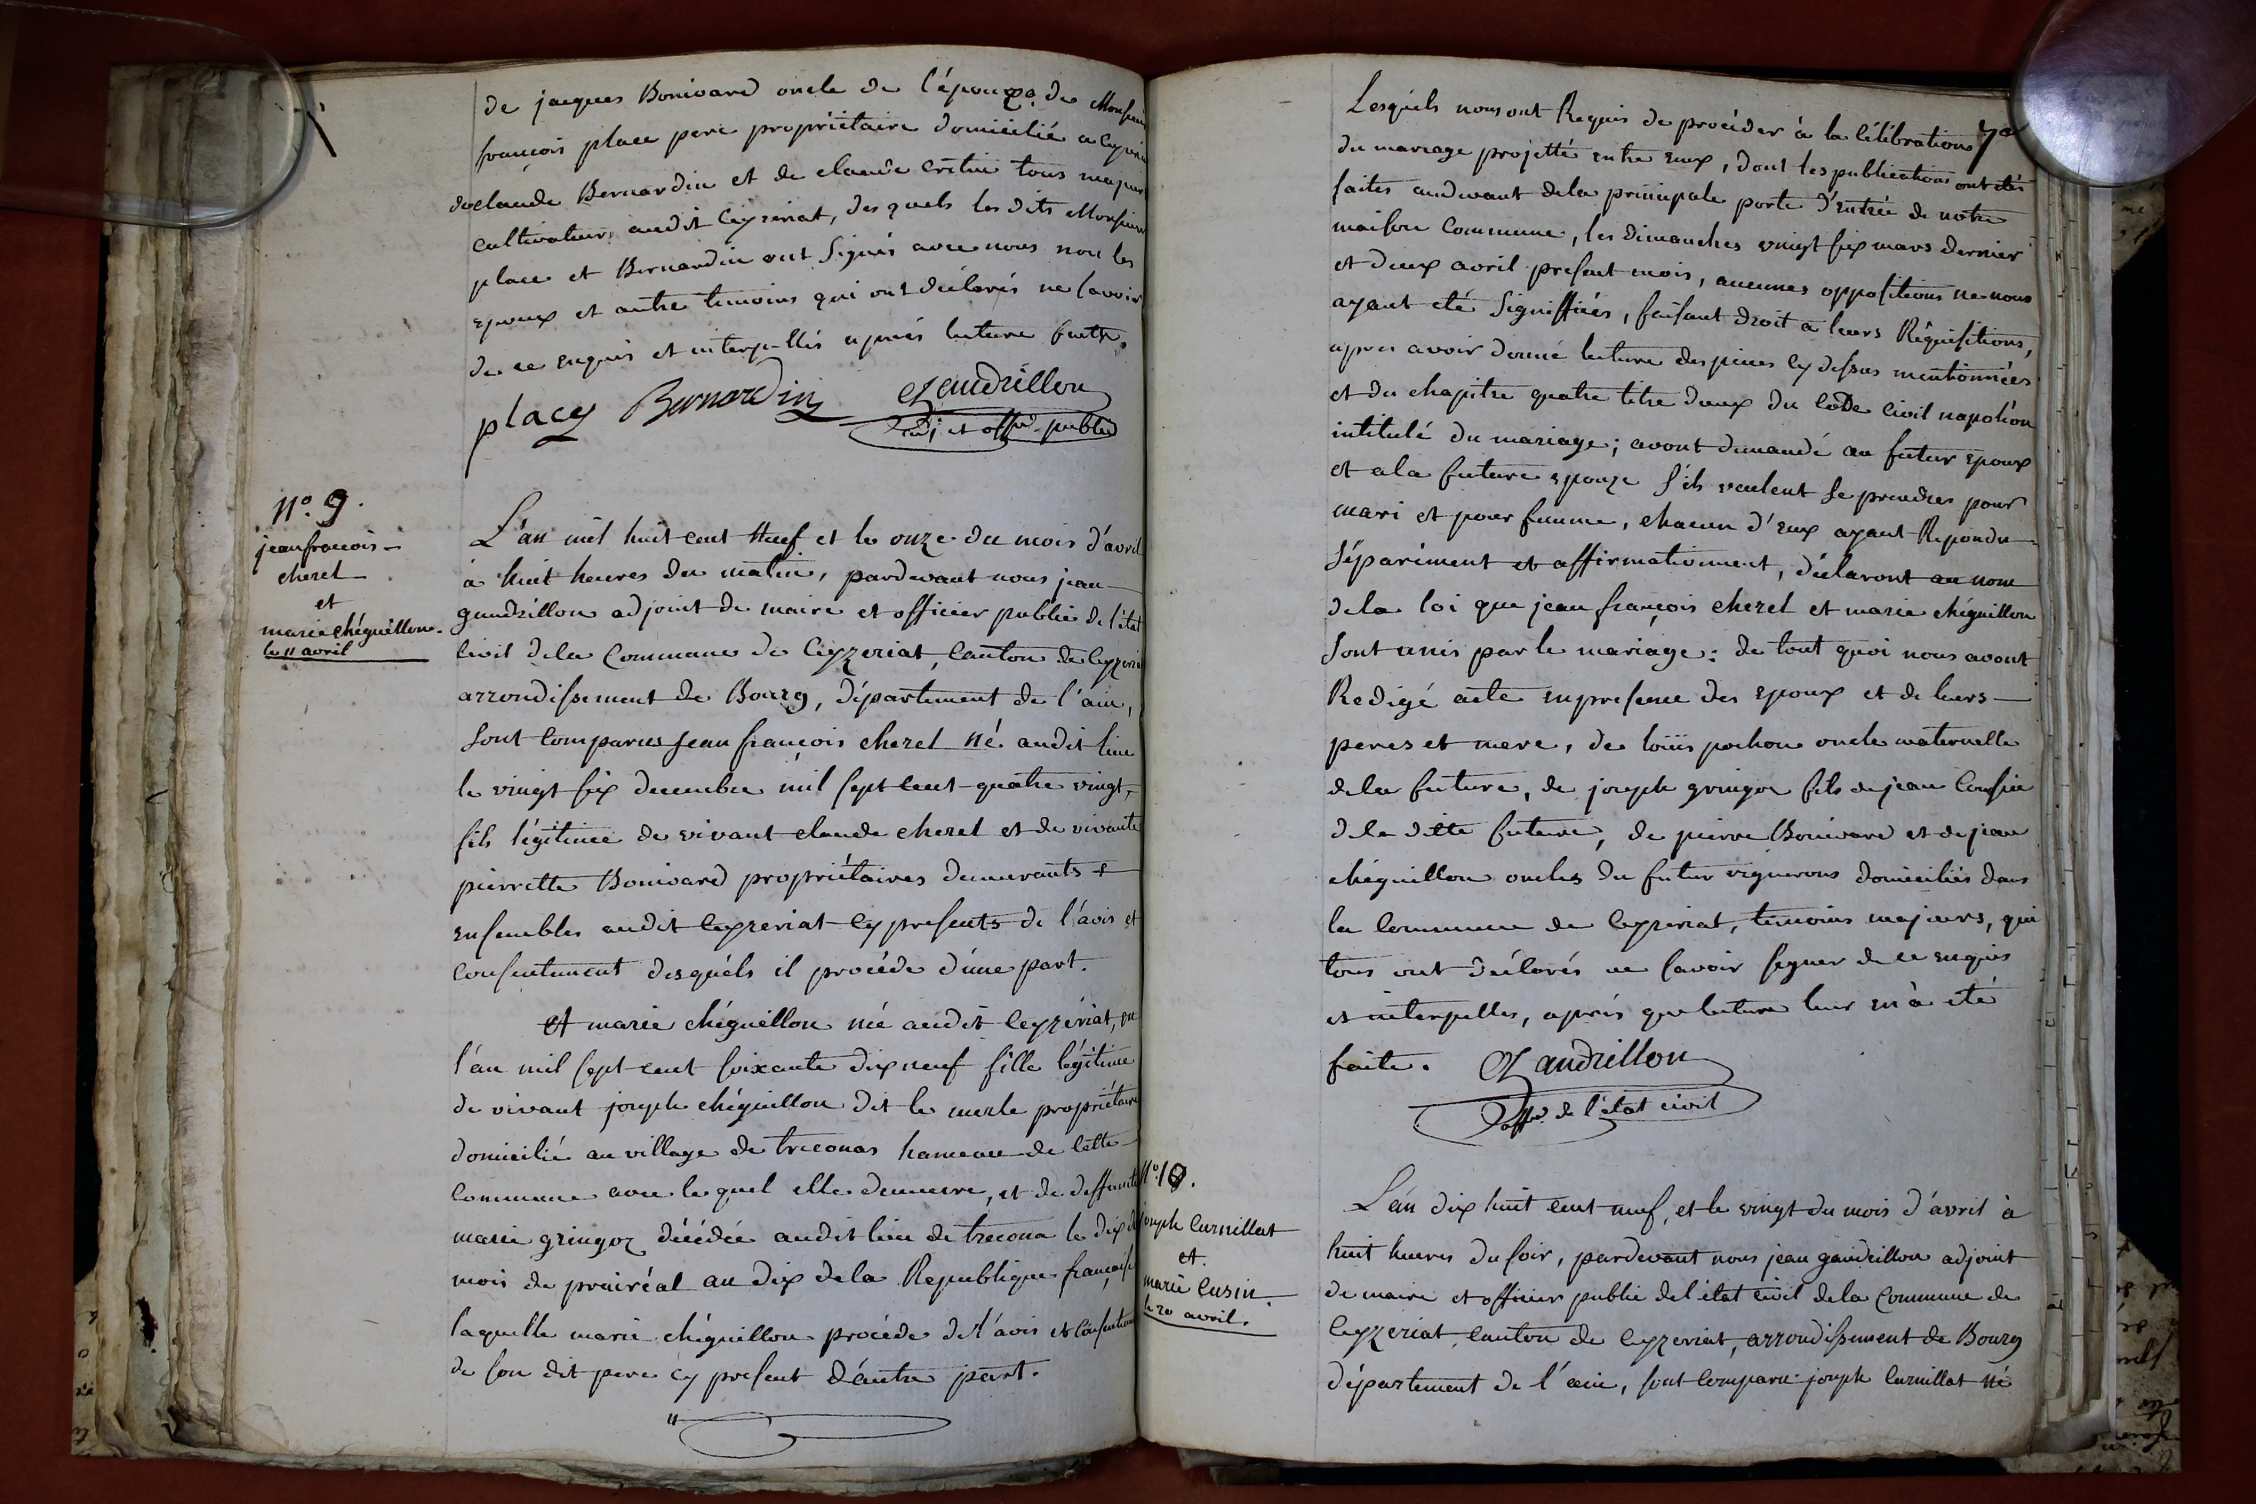 de jacques Bonivard oncle de l'épouze, de Monsieur
françois place pere propriétaire domicilié a ceyzeriat
de claude Bernardin et de claude crétin tous majeurs
cultivateurs audit Ceyzeriat, des quels les dits Monsieur
place et Bernardin ont signés avec nous non les
epoux et autre temoins qui ont déclarés ne savoir
de ce enquis et interpellés aprés lecture faite.
place Bernardin Gandrillon
adj et offer public
N.o 9.
jean françois
cherel
et
marie chéguillon
le 11 avril
L'an mil huit cent Neuf et le onze du mois d'avril
à huit heures du matin, pardevant nous jean
gandrillon adjoint de maire et officier public de l'état
civil dela Commune de Ceyzeriat, Canton de Ceyzeriat
arrondissement de Bourg, département de l'ain,
sont Comparus Jean françois cherel Né audit lieu
le vingt six decembre mil sept cent quatre vingt,
fils légitime de vivant claude cherel et de vivante
pierrette Bonivard propriétaires demeurants
ensembles audit ceyzeriat cy presents de l'avis et
consentement desquéls il procéde d'une part.
Et marie chéguillon née audit Ceyzériat, en
l'an mil sept cent soixante dix neuf fille légitime
de vivant joseph chéguillon dit le merle propriétaire
domicilié au village de treconas hameau de cette
Commune avec lequel elle demeure, et de deffunte
marie gringoz décédée audit lieu de trecona le dix du
mois de prairéal an dix dela Republique française
laquelle marie chéguillon procéde de l'avis et Consentement
de son dit pere cy present d'autre part.
Lesquéls nous ont Requis de procéder à la célébration
du mariage projetté entre eux, dont les publications ont étés
faites audevant dela principale porte d'entrée de notre
maison Commune, les dimanches vingt six mars dernier
et deux avril present mois, aucunes oppositions ne nous
ayant eté signiffiées, faisant droit à leurs Réquisitions,
apres avoir donné lecture des pieces cy dessus mentionnées
et du chapitre quatre titre deux du Code Civil napoléon
intitulé du mariage; avont demandé au futur epoux
et ala future epouze s'ils veulent se prendres pour
mari et pour femme, chacun d'eux ayant Repondu
séparément et affirmativement, déclaront au nom
dela loi que jean françois cherel et marie chéguillon
sont unis par le mariage: de tout quoi nous avont
Redigé acte en presence des epoux et de leurs
peres et mere, de loüis pochon oncle maternelle
dela future, de joseph gringoz fils de jean Cousin
dela ditte future, de pierre Bonivard et de jean
chéguillon oncles du futur vignerons domiciliés dans
la Commune de Ceyzeriat, temoins majeurs, qui
tous ont déclarés ne savoir signer de ce enquis
et interpelles, aprés que lecture leur en à eté
faite. Gandrillon
offer de l'état civil
N.o 10.
joseph Curnillat
et
marie Cusin
le 20 avril.
L'an dix huit cent neuf, et le vingt du mois d'avril à
huit heures du soir, pardevant nous jean gandrillon adjoint
de maire et officier public del'état civil dela Commune de
Ceyzeriat, Canton de Ceyzeriat, arrondissement de Bourg
département de l'ain, sont Comparu joseph Curnillat né